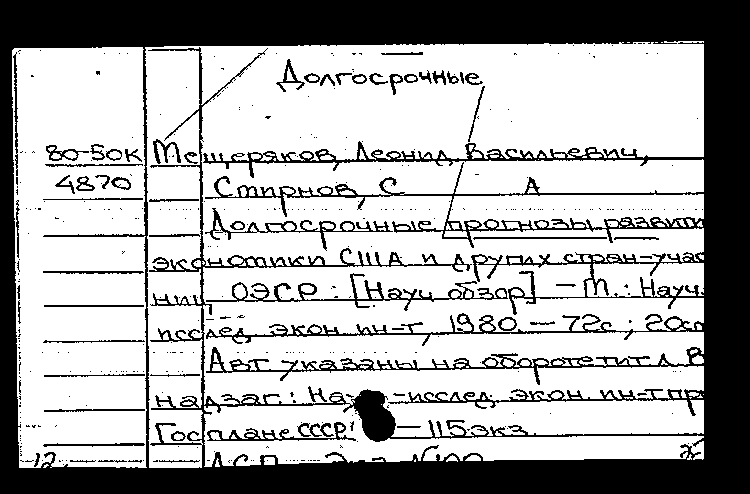 Долгосрочные
80-50к Мещеряков, Леонид Васильевич,
4870 Смирнов, С А
Долгосрочные прогнозы развити
экономики США и других стран-учас
ниц ОЭСР: [Науч обзор] – М.: Науч.
исслед экон ин-т, 1980. – 72с; 20см
Авт указаны на обороте тит л В
надзаг.: На -исслед экон ин-т пр
Госплане СССР – 115экз
12.